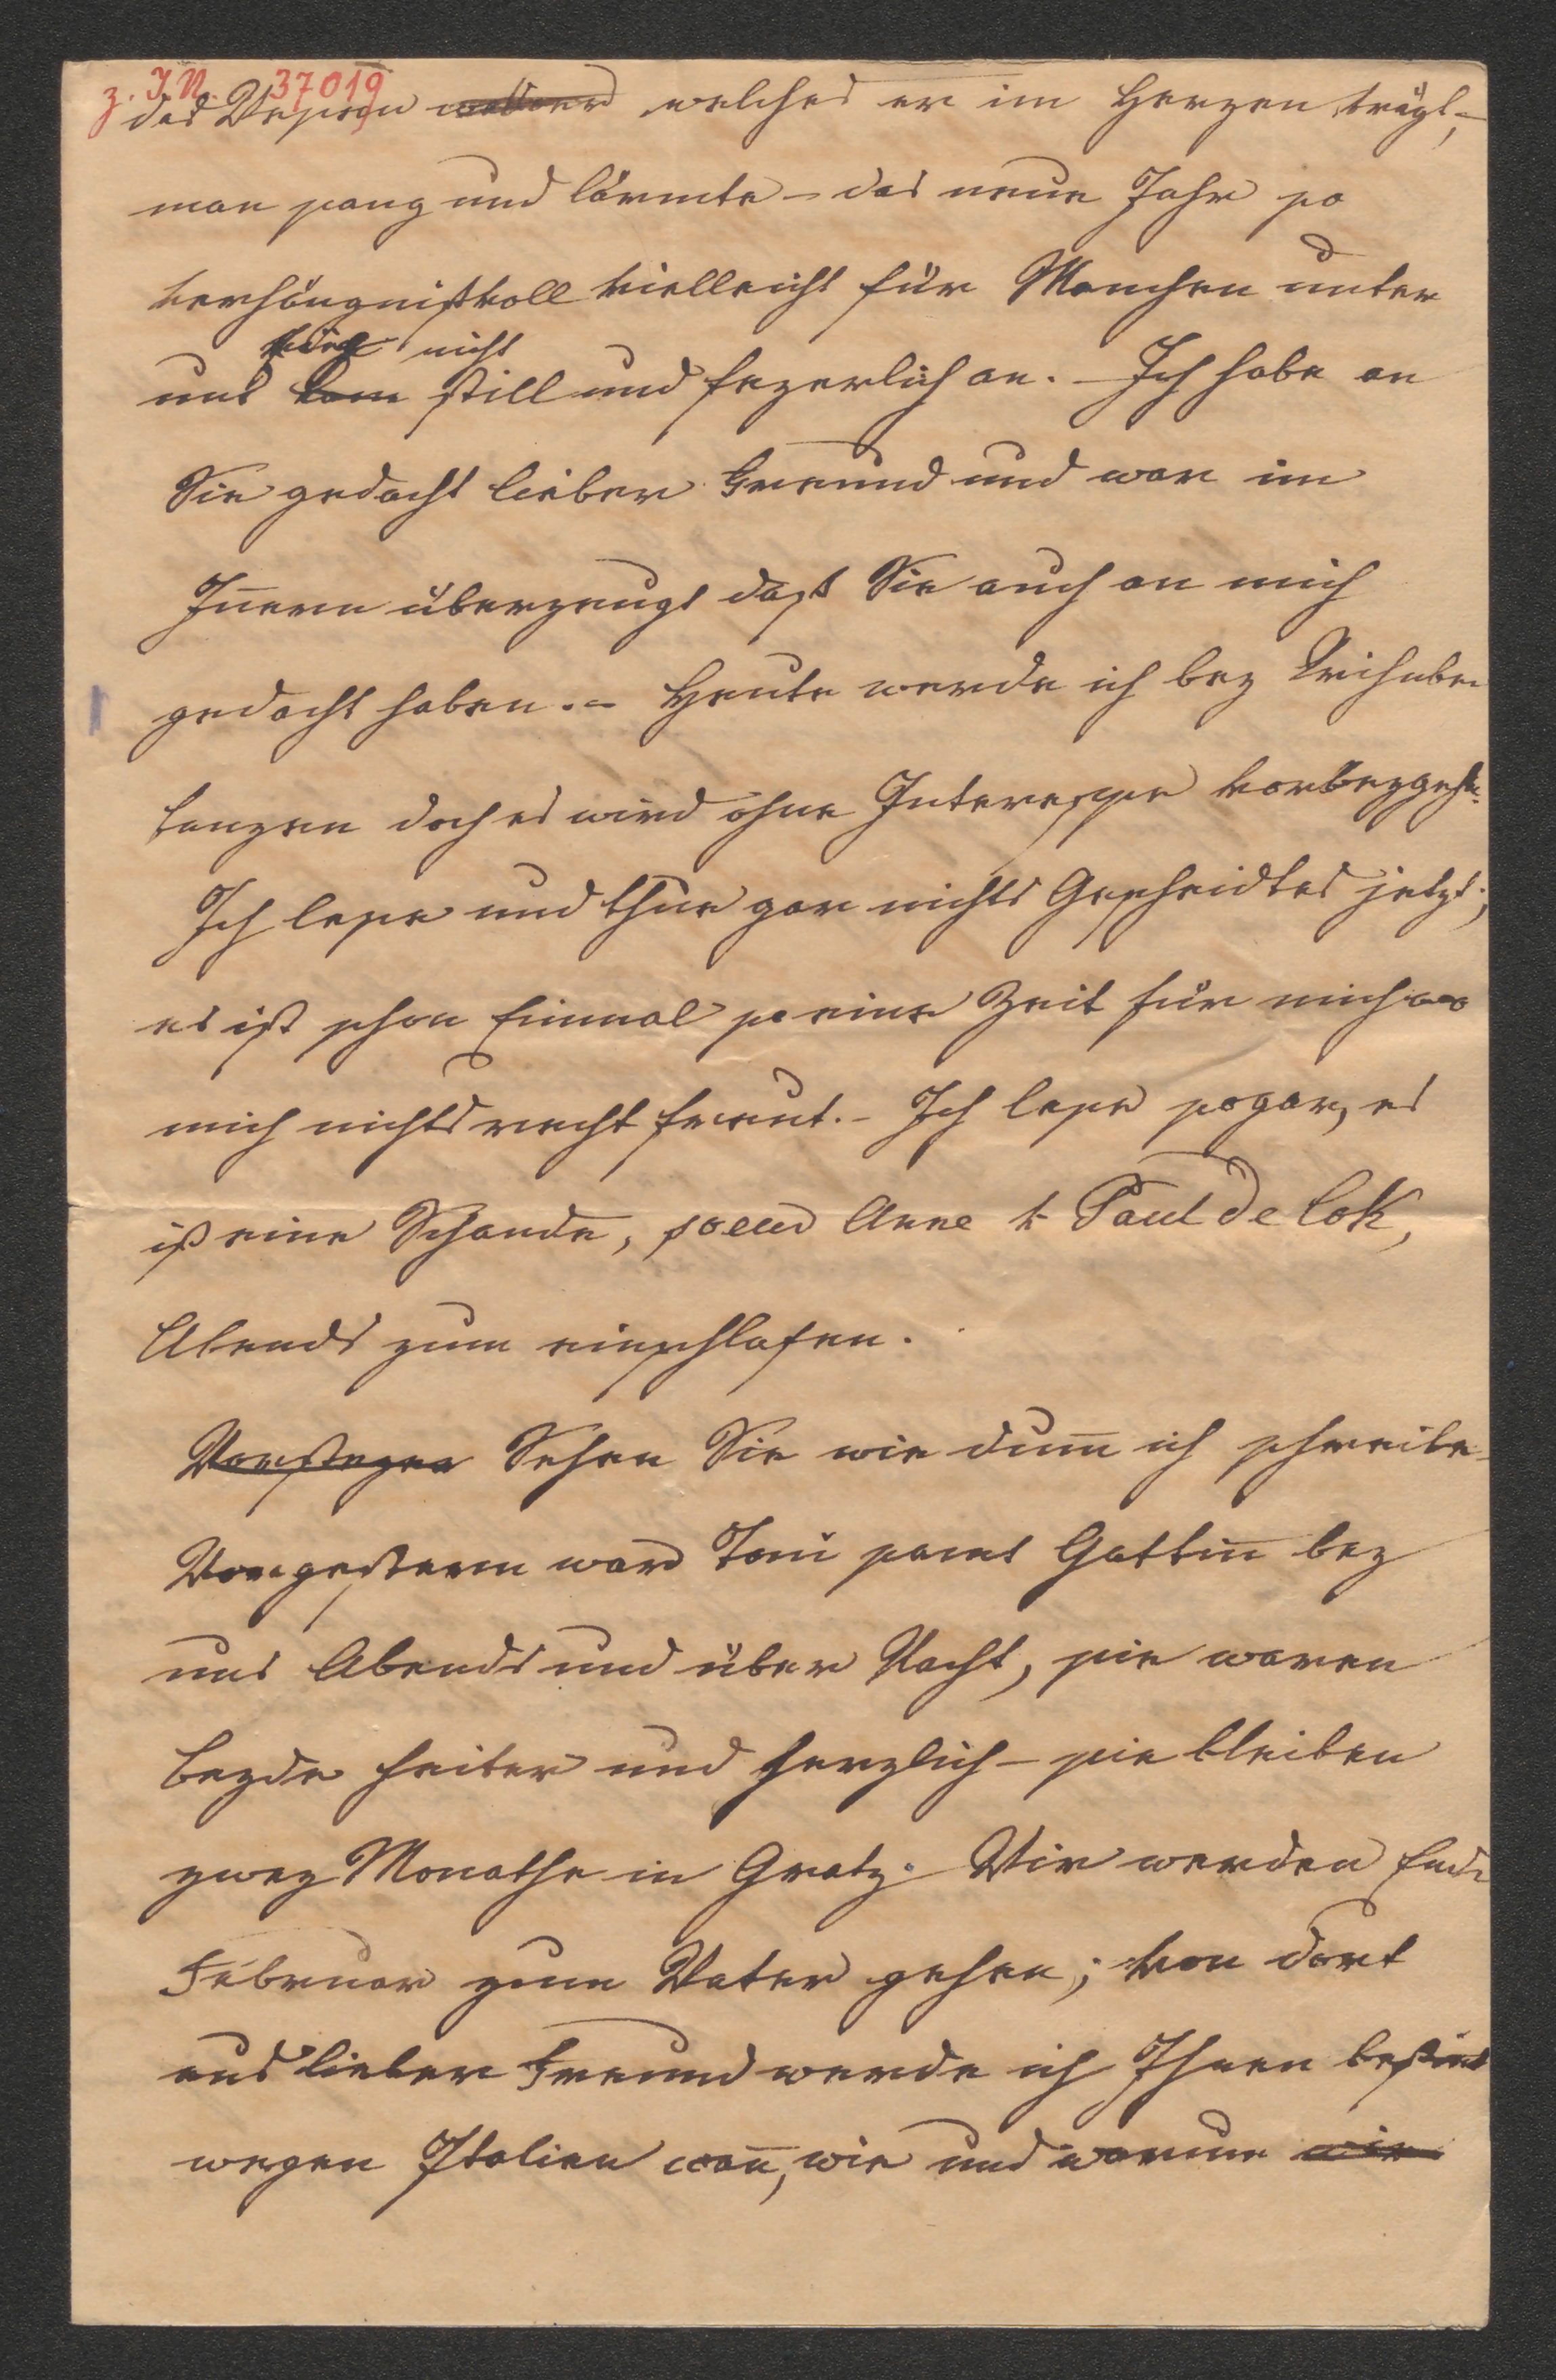 z. I. N. 37019
das Wesen welches er im Herzen trägt,-
man sang und lärmte – das neue Jahr so
verhängnißvoll vielleicht für Manchen unter
fieng nicht
uns kam still und feyerlich an. – Ich habe an
Sie gedacht lieber Freund und war im
Iñern überzeugt daß Sie auch an mich
gedacht haben. – Heute werde ich bey
tanzen doch es wird ohne Interesse vorbeygehn.
Ich lese und thue gar nichts Gescheidtes jetzt;
es ist schon Einmal so eine Zeit für mich wo
mich nichts recht freut. – Ich lese sogar, es
ist eine Schande, soeur Anne v. Paul de Cok,
Abends zum einschlafen.
Sehen Sie wie dum̄ ich schreibe-
Vorgestern war Toni samt Gattin̄ bey
uns Abends und über Nacht, sie waren
beyde heiter und herzlich – sie bleiben
zwey Monathe in Gratz. Wir werden Ende
Februar zum Vater gehen; von dort
aus lieber Freund werde ich Ihnen
wegen Italien wan̄, wie und warum wir